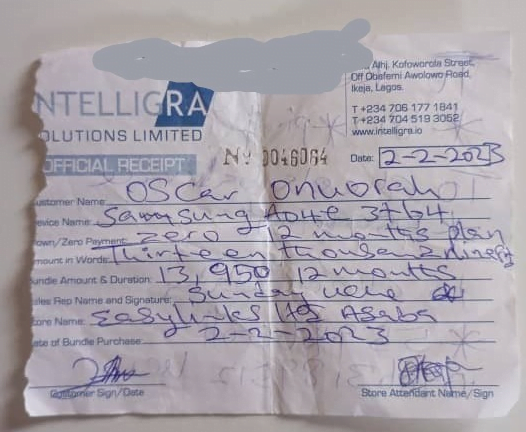 Alhj. Kofoworola Street,
Off Obafemi Awolowo Road,
Ikeja, Lagos.
T +234 706 177 1841
T +234 704 519 3062
www.intelligra.io
NTELLIGRA
OLUTIONS LIMITED
OFFICIAL RECEIPT
No 0046064
Date: 2-2-2023
ustomer Name: OSCar Onuorah
evice Name: Samsung A04e 3+64
own/Zero Payment: Zero 12 months plan
mount in Words: Thirteen thousand nine
undle Amount & Duration: 13,950 12 months
ales Rep Name and Signature: Sunday
ore Name: Easylinks Asaba
ate of Bundle Purchase: 2-2-2023
Customer Sign/Date
Store Attendant Name/Sign